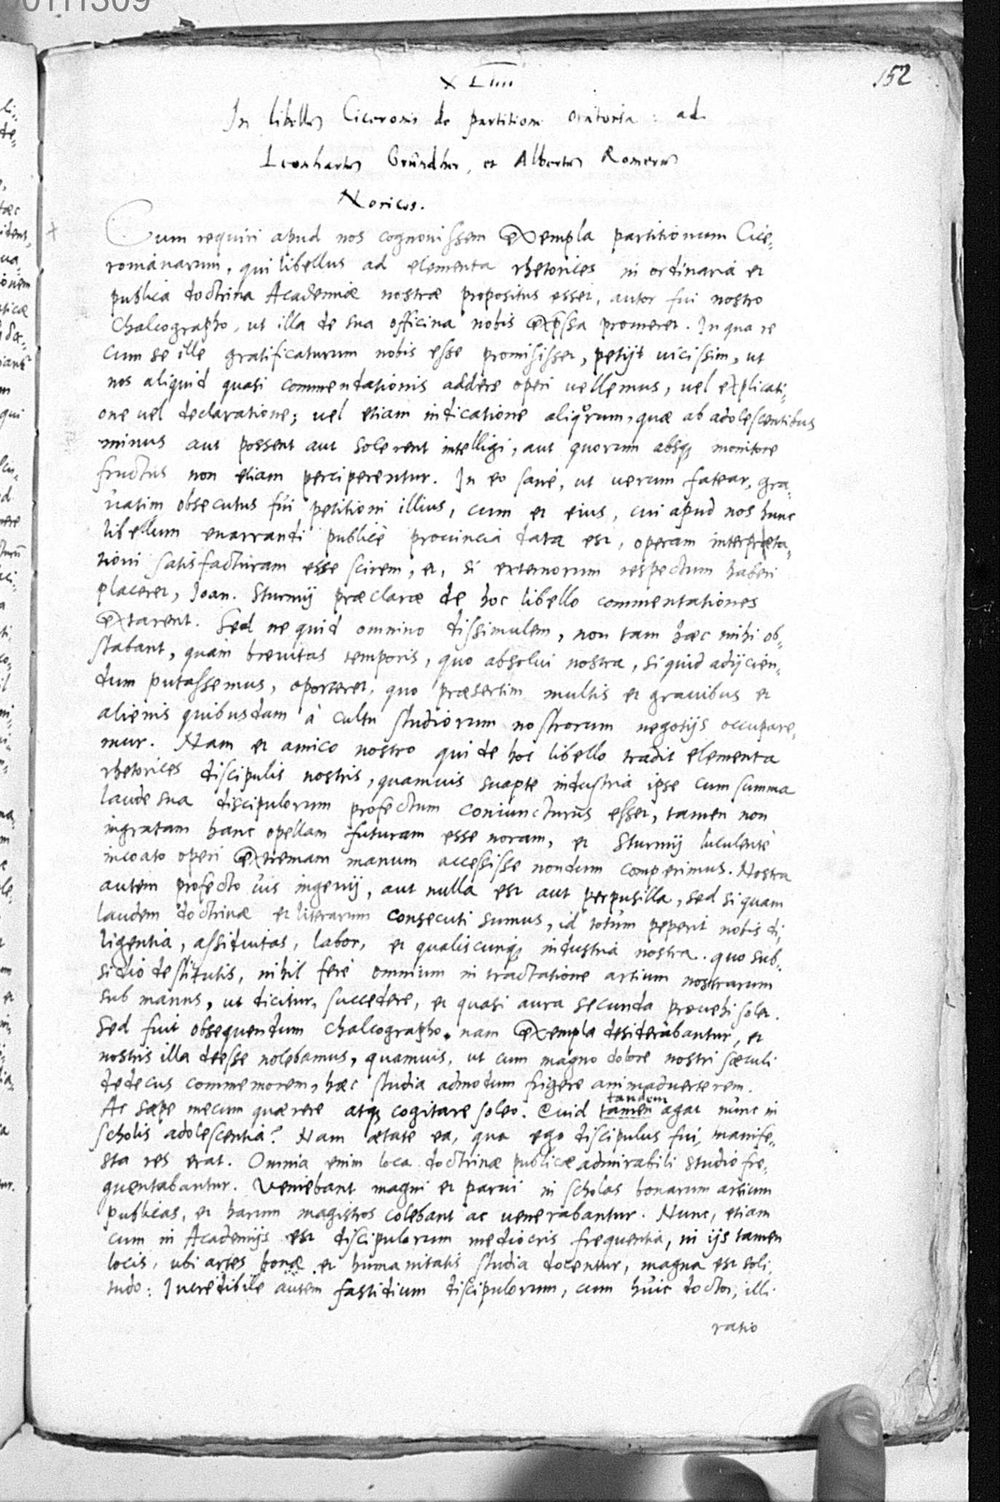 00111309
152
XLIIII
In libellum Ciceronis de partitione oratoria: ad
Leonhartum Gründher, et Albertum Romerum
Noricos.
Cum requiri apud nos cognovissem Exempla partitionum Cice-
ronianarum, qui libellus ad elementa rhetorices in ordinaria et
publica doctrina Academiæ nostræ propositus esset, autor fui nostro
Chalcographo, ut illa de sua officina nobis expressa promeret. In qua re
cum se ille gratificaturum nobis esse promisisset, petijt vicissim, ut
nos aliquid quasi commendationis addere operi vellemus, vel explicati-
one vel declaratione; vel etiam indicatione aliquorum, quæ ab adolescentibus
minus aut possent aut solerent intelligi, aut quorum absq; monitore
fructus non etiam perciperentur. In eo sanè, ut verum fatear, gra-
vatim obsecutus fui petitioni illius, cum et eius, cui apud nos hunc
libellum enarrandi publicè provincia data est, operam interpræta-
tioni satisfacturam esse scirem, et, si externorum respectum haberi
placeret, Joan. Sturmij præclaræ de hoc libello commentationes
extarent. Sed ne quid omnino dissimulem, non tam hæc mihi ob-
stabant, quàm brevitas temporis, quo absolvi nostra, si quid adijcien-
dum putassemus, oporteret, quo præsertim multis et gravibus et
alienis quibusdam à cultu studiorum nostrorum negotijs occupare-
mur. Nam et amico nostro qui de hoc libello tradit elementa
rhetorices discipulis nostris, quamvis suapte industria ipse cum summa
laude sua discipulorum profectum coniuncturus esset, tamen non
ingratam hanc opellam futuram esse noram, et Sturmij luculentè
incoato operi extremam manum accessisse nondum comperimus. Nostra
autem profecto vis ingenij, aut nulla est aut perpusilla, sed si quam
laudem doctrinæ et literarum consecuti sumus, id totum peperit nobis di-
ligentia, assiduitas, labor, et qualiscunq; industria nostra. quo sub-
sidio destitutis, nihil ferè omnium in tractatione artium nostrarum
sub manus, ut dicitur, succedere, et quasi aura secunda provehi solet.
Sed fuit obsequendum chalcographo. nam Exempla desiderabantur, et
nostris illa deesse nolebamus, quamvis, ut cum magno dolore nostri sæculi
dedecus commemorem, hæc studia admodum frigere animadverterem.
tandem
Ac sæpe mecum quærere atq; cogitare soleo. Quid tamen agat nunc in
scholis adolescentia? Nam ætate ea, qua ego discipulus fui, manife-
sta res erat. Omnia enim loca doctrinæ publicæ admirabili studio fre-
quentabantur. Veniebant magni et parvi in scholas bonarum artium
publicas, et harum magistros colebant ac venerabantur. Nunc, etiam
cum in Academijs est discipulorum mediocris frequentia, in ijs tamen
locis, ubi artes bonæ et humanitatis studia docentur, magna est soli-
tudo: Incredibile autem fastidium discipulorum, cum huic doctor, illi
ratio